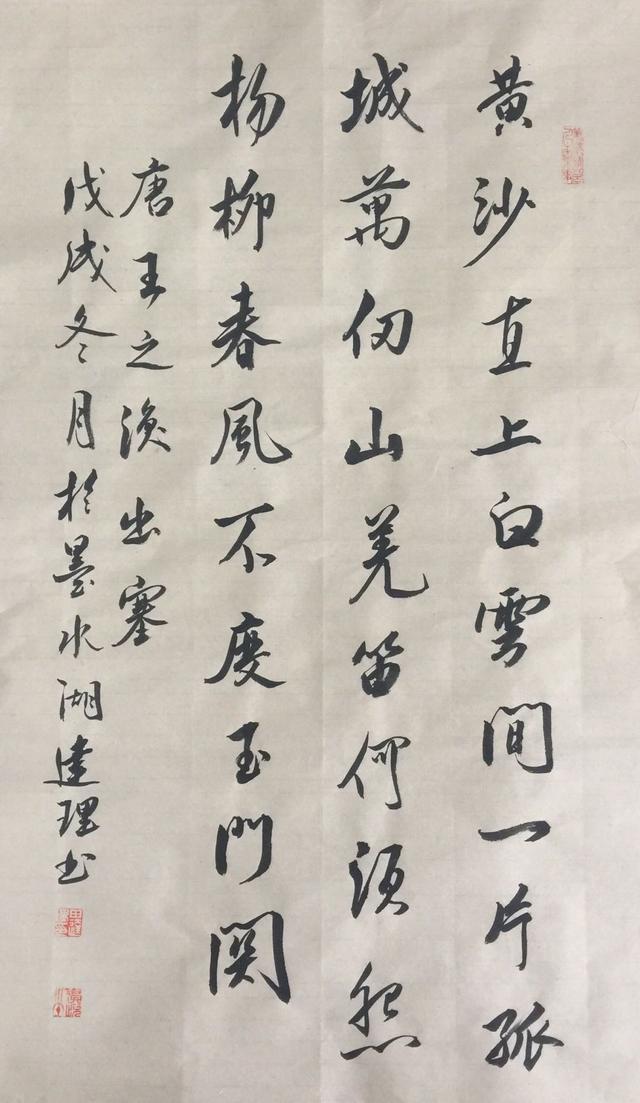 黄沙直上白雲間一片孤
城萬仞山羌笛何須怨
杨柳春風不度玉門関
唐王之渙出塞
戊戌冬月於墨水湖達理书